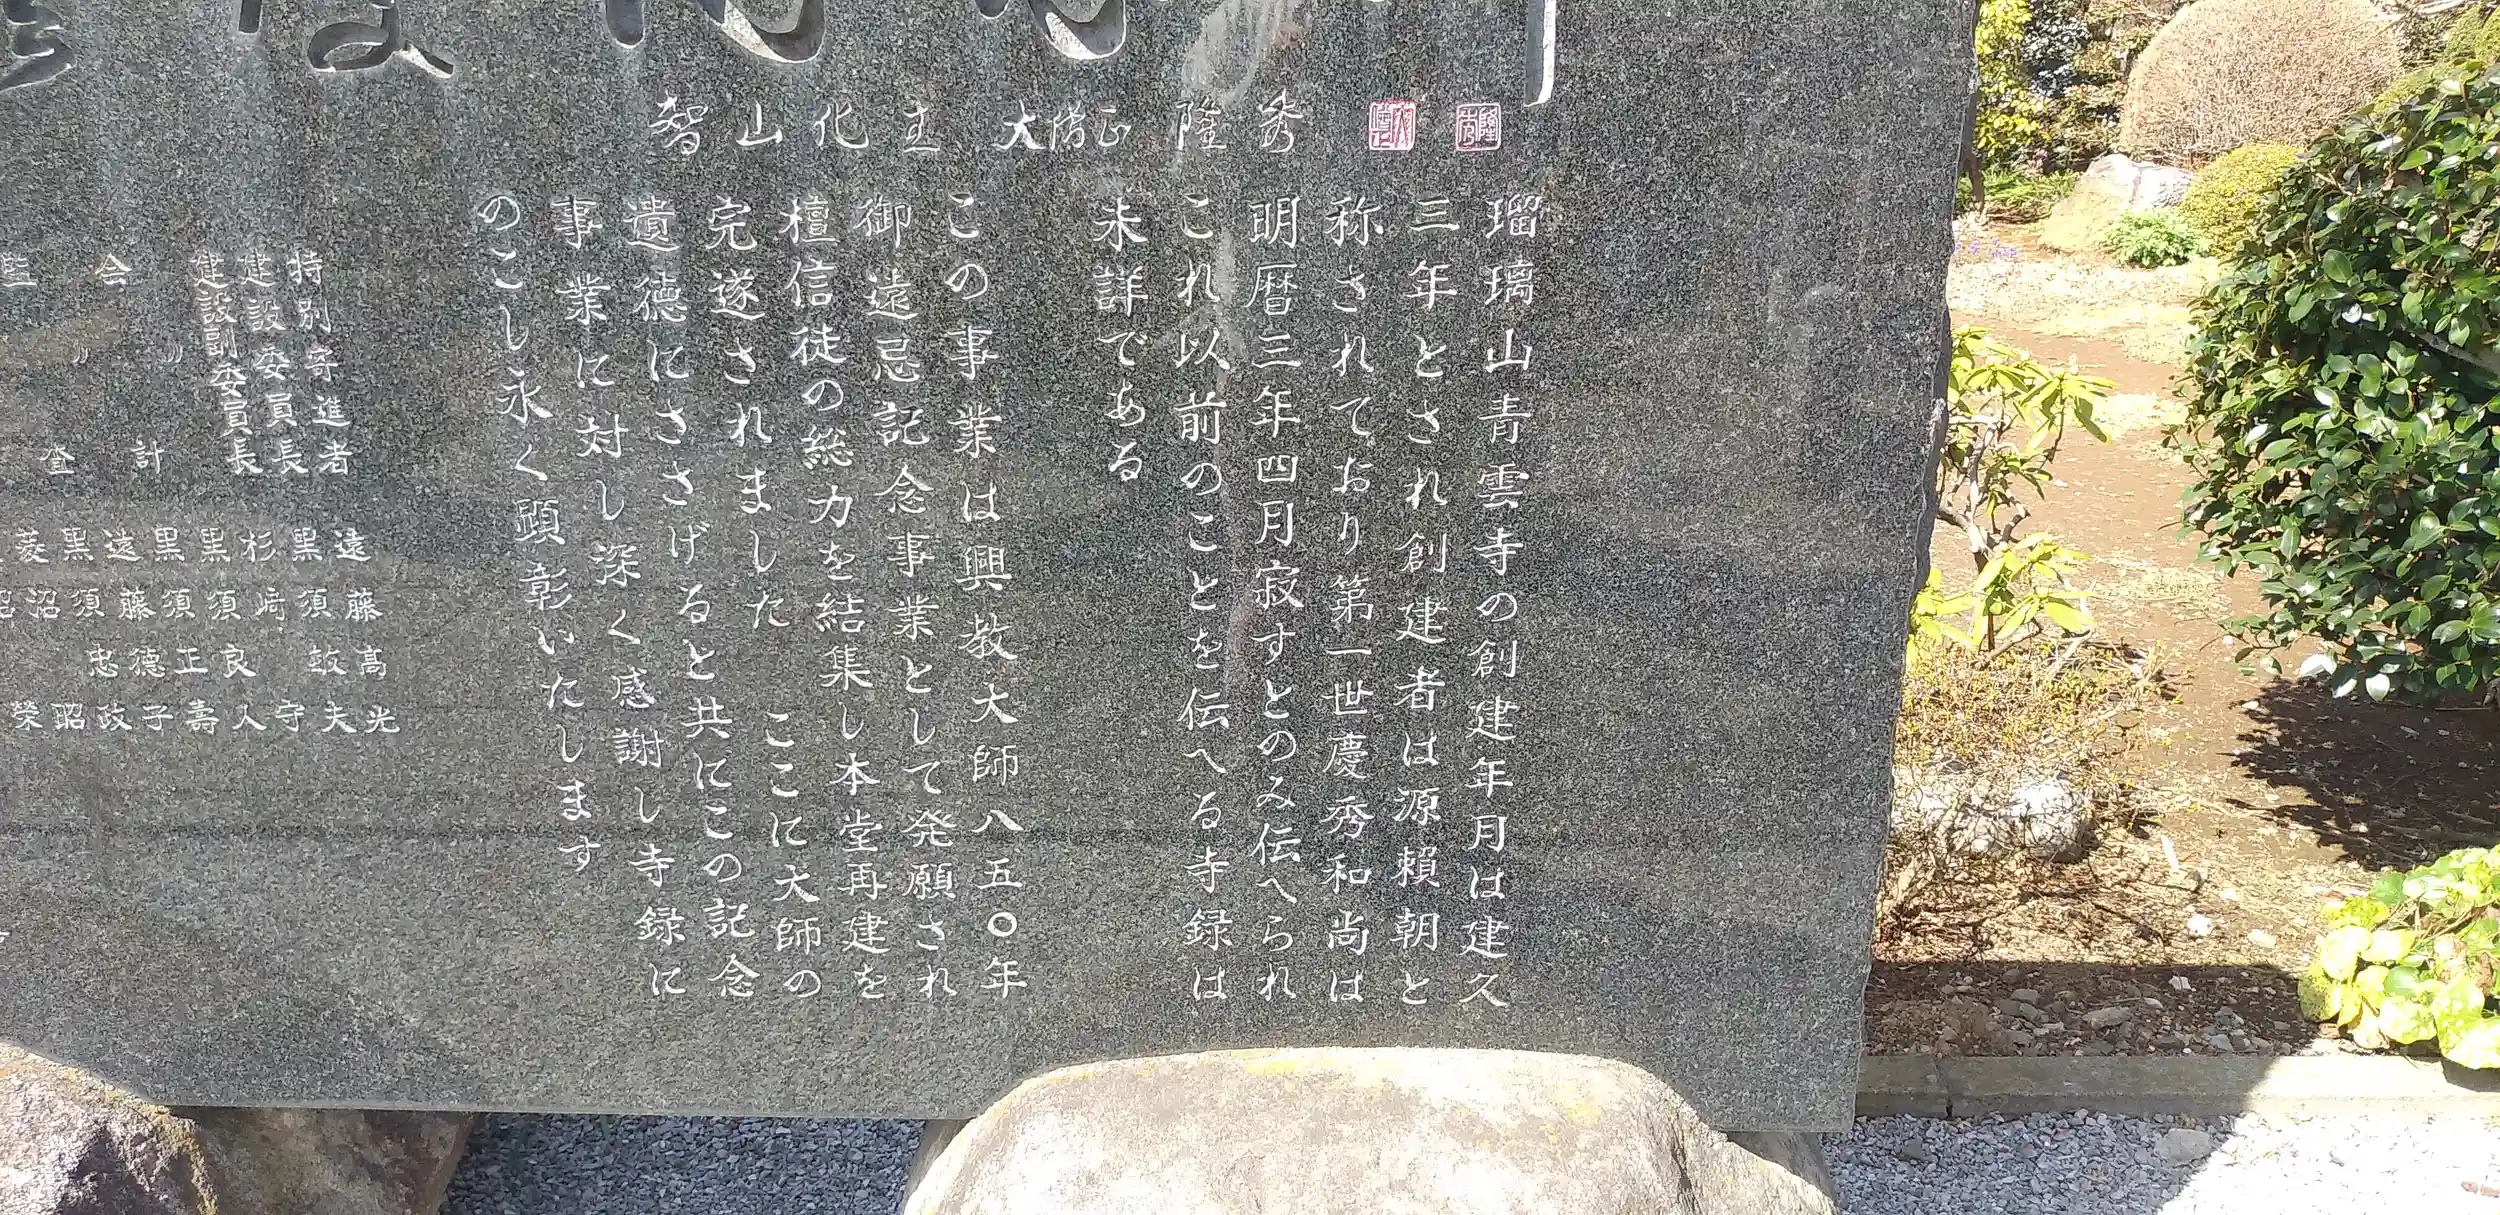 智山化主 大僧正 隆秀
瑠璃山青雲寺の創建年月は建久
三年とされ創建者は源賴朝と
称されており第一世慶秀和尚は
明暦三年四月寂すとのみ伝へられ
これ以前のことを伝へる寺録は
未詳である
この事業は興教大師八五〇年
御遠忌記念事業として発願され
檀信徒の総力を結集し本堂再建を
完遂されました ここに大師の
遺徳にささげると共にこの記念
事業に対し深く感謝し寺録に
のこし永く顕彰いたします
特別寄進者 遠藤高光
建設委員長 黒須敏夫
建設副委員長 杉崎守
〃 黒須良人
会計 黒須正壽